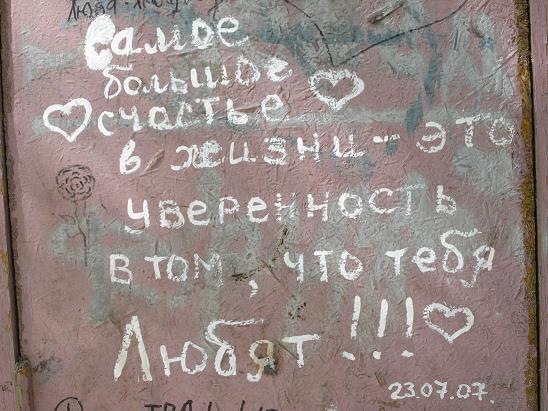 Люба - Люш
Самое
большое
счастье
в жизни - это
уверенность
в том, что тебя
Любят !!!
23.07.07.